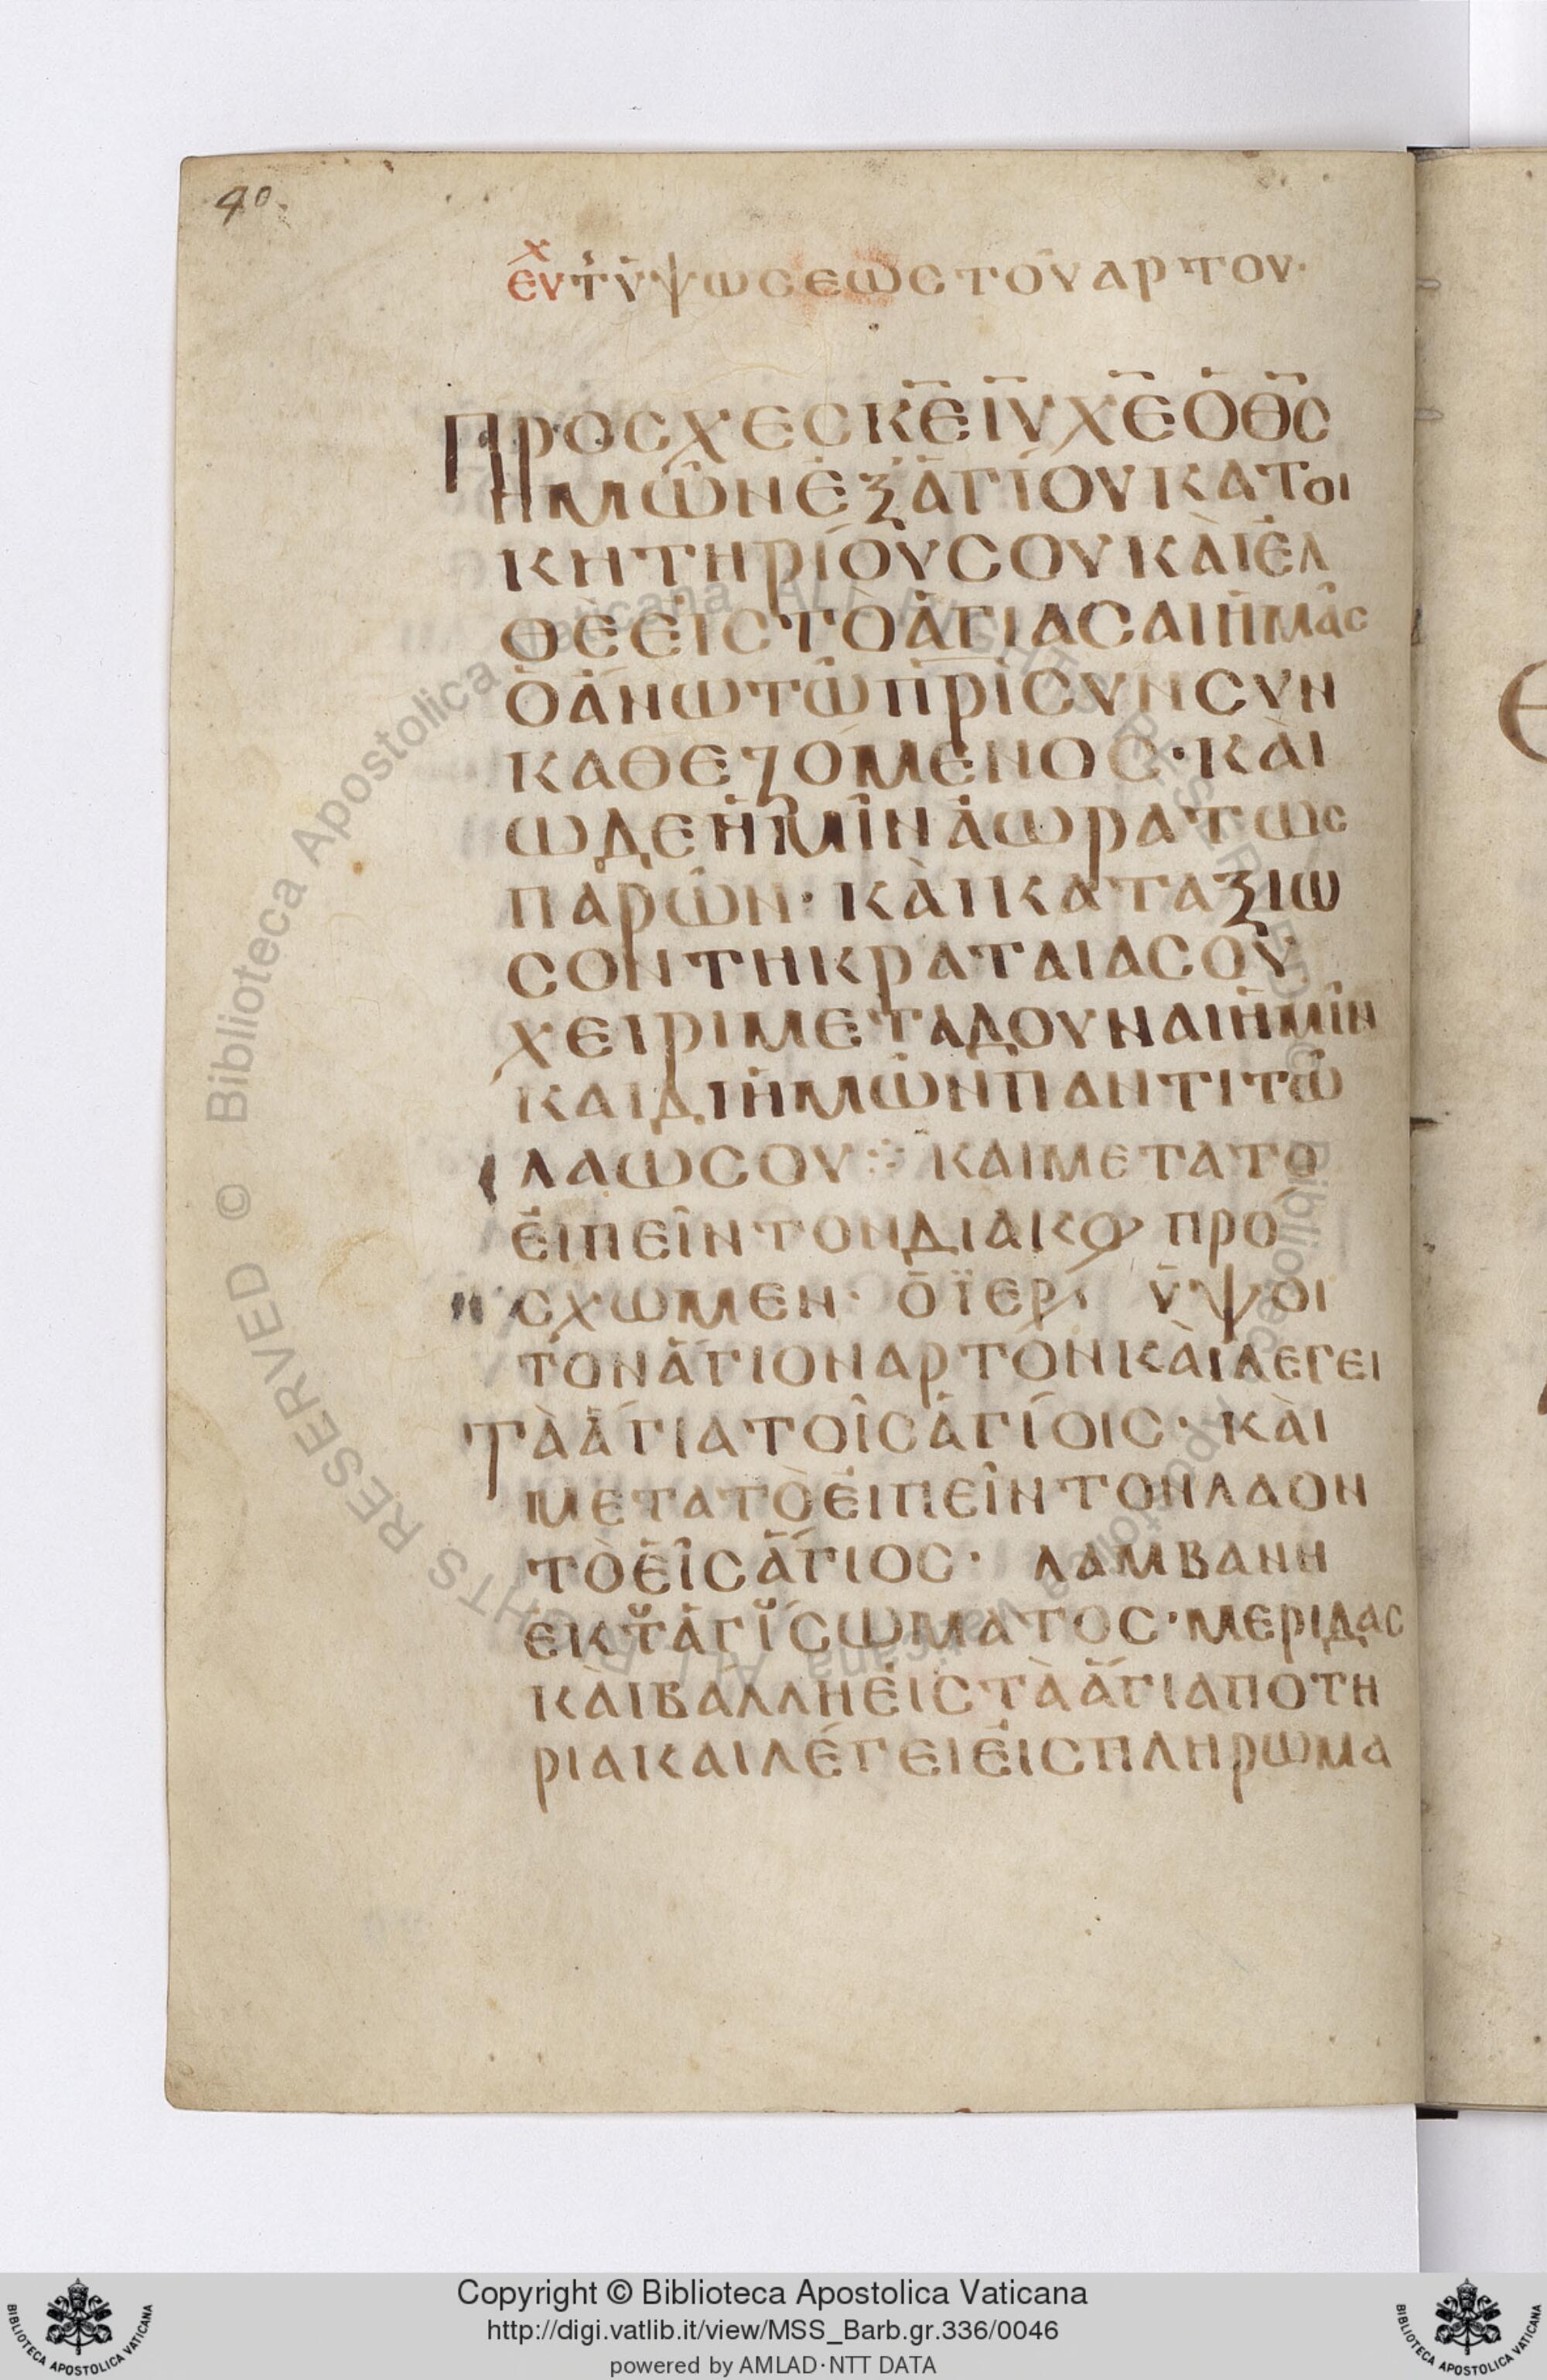 40.
ΕΥΧ ΤΗ ΥΨΩϹΕΩϹ ΤΟΥ ΑΡΤΟΥ·
ΠΡΟϹΧΕϹ Κ̅Ε̅ Ι̅Υ̅ Χ̅Ε̅ Ο Θ̅Ϲ̅
ΗΜΩΝ ΕΞ ΑΓΙΟΥ ΚΑΤΟΙ
ΚΗΤΗΡΙΟΥ ϹΟΥ ΚΑΙ ΕΛ
ΘΕ ΕΙϹ ΤΟ ΑΓΙΑϹΑΙ ΗΜΑϹ
Ο ΑΝΩ ΤΩ Π̅Ρ̅Ι̅ ϹΥΝϹΥΝ
ΚΑΘΕΖΟΜΕΝΟϹ· ΚΑΙ
ΩΔΕ ΗΜΙΝ ΑΩΡΑΤΩϹ
ΠΑΡΩΝ· ΚΑΙ ΚΑΤΑΞΙΩ
ϹΟΝ ΤΗ ΚΡΑΤΑΙΑ ϹΟΥ
ΧΕΙΡΙ ΜΕΤΑΔΟΥΝΑΙ ΗΜΙΝ
ΚΑΙ ΔΙ ΗΜΩΝ ΠΑΝΤΙ ΤΩ
ΛΑΩ ϹΟΥ ⁘ ΚΑΙ ΜΕΤΑ ΤΟ
ΕΙΠΕΙΝ ΤΟΝ ΔΙΑΚΟ ΠΡΟ
ϹΧΩΜΕΝ· Ο ΪΕΡ ΥΨΟΙ
ΤΟΝ ΑΓΙΟΝ ΑΡΤΟΝ ΚΑΙ ΛΕΓΕΙ
ΤΑ ΑΓΙΑ ΤΟΙϹ ΑΓΙΟΙϹ· ΚΑΙ
ΜΕΤΑ ΤΟ ΕΙΠΕΙΝ ΤΟΝ ΛΑΟΝ
ΤΟ ΕΙϹ ΑΓΙΟϹ· ΛΑΜΒΑΝΗ
ΕΚ ΤȢ ΑΓΙȢ ϹΩΜΑΤΟϹ· ΜΕΡΙΔΑϹ
ΚΑΙ ΒΑΛΛΗ ΕΙϹ ΤΑ ΑΓΙΑ ΠΟΤΗ
ΡΙΑ ΚΑΙ ΛΕΓΕΙ ΕΙϹ ΠΛΗΡΩΜΑ
© Biblioteca Apostolica Vaticana ALL RIGHTS RESERVED
Copyright © Biblioteca Apostolica Vaticana
http://digi.vatlib.it/view/MSS_Barb.gr.336/0046
powered by AMLAD·NTT DATA
BIBLIOTECA APOSTOLICA VATICANA
BIBLIOTECA APOSTOLICA VATICANA